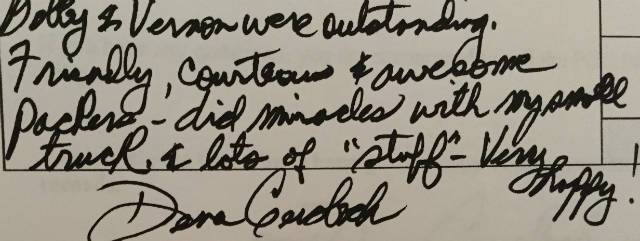 Bobby & Vernon were outstanding.
Friendly, courteous & awesome
Packers - did miracles with my small
truck, & lots of "stuff" - Very
happy!
Dana